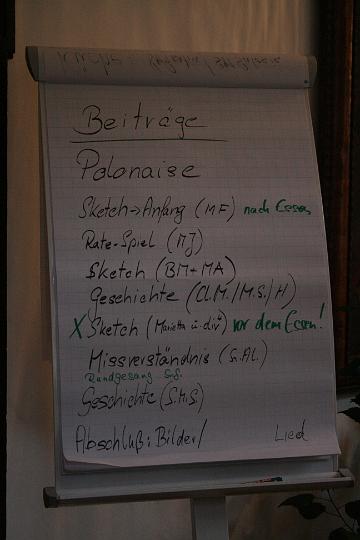 Beiträge
Polonaise
Sketch→Anfang (MF) nach Essen
Rate-Spiel (MJ)
Sketch (BM+MA)
Geschichte (Cl.M./M.S./H)
X Sketch (Marietta u. div.) vor dem Essen!
Missverständnis (Sr.Al.)
Rundgesang S.S.
Geschichte (S.M.S.)
Abschluß: Bilder/ Lied